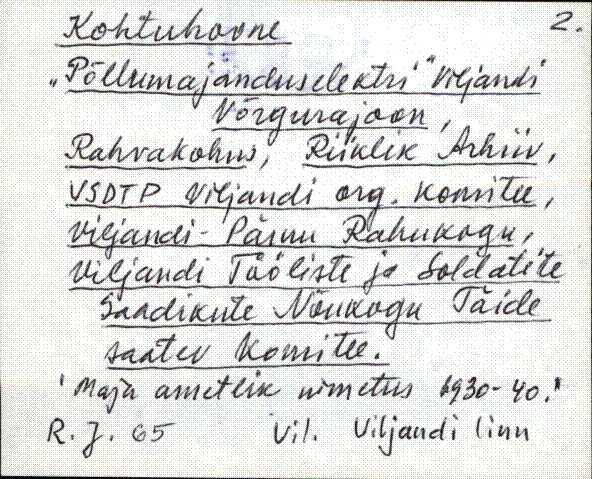 2.
Kohtuhoone
„Põllumajanduselektri" Viljandi
Võrgurajoon,
Rahvakohus, Riiklik Arhiiv,
VSDTP Viljandi org. komitee,
Viljandi-Pärnu Rahukogu,
Viljandi Tööliste ja Soldatite
Saadikute Nõukogu Täide
saatev Komitee.
'Maja ametlik nimetus 1930-40.'
R. J. 65 Vil. Viljandi linn